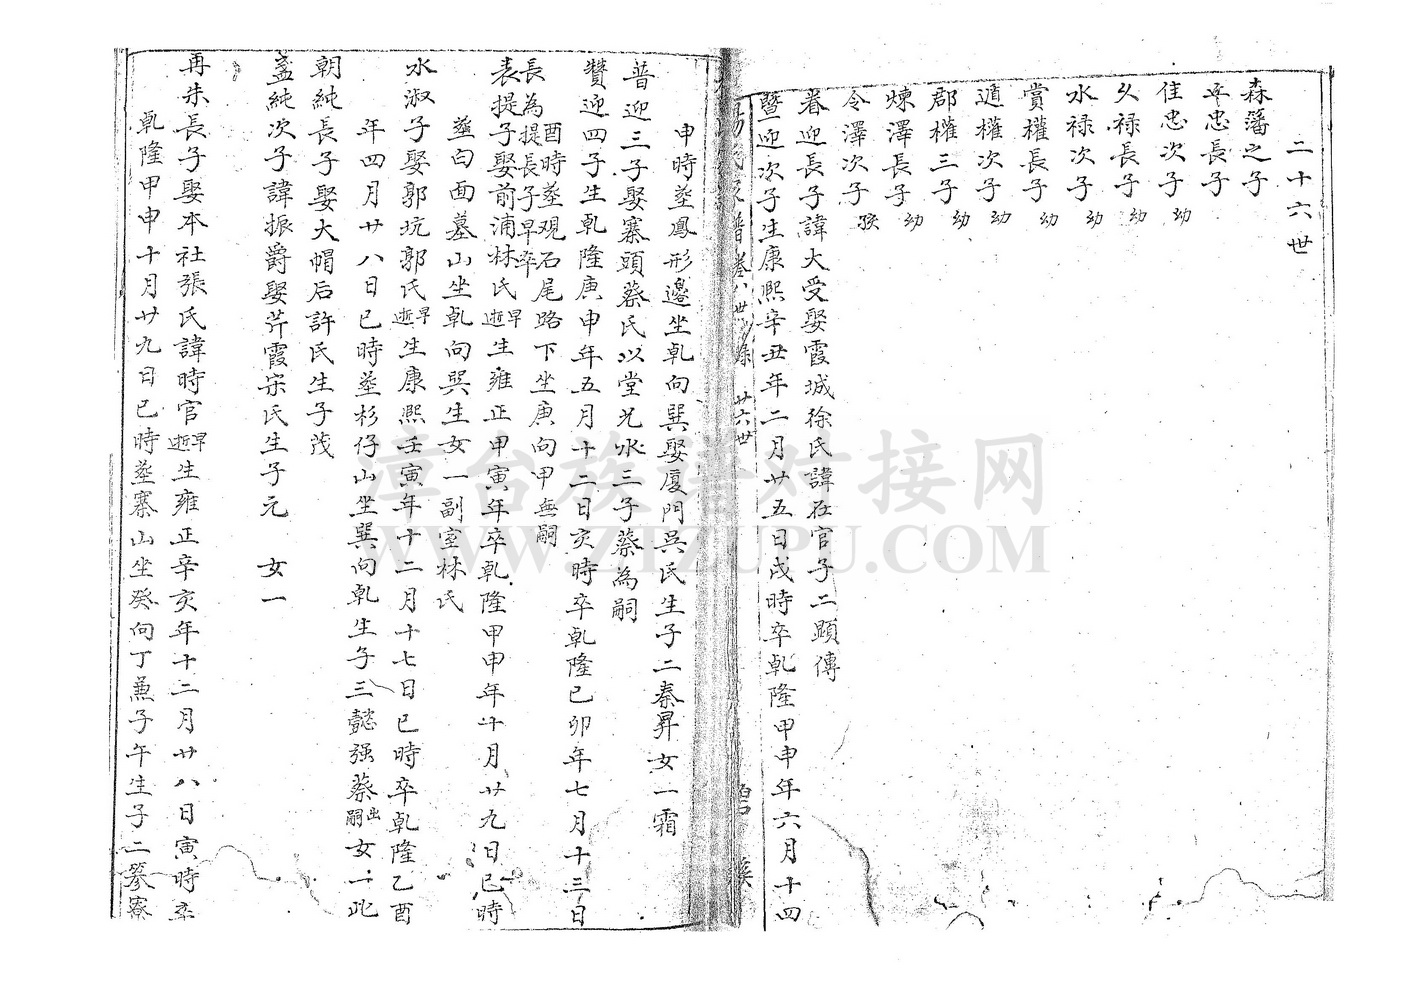 二十六世
森藩之子
忠長子
住忠次子 幼
久祿長子 幼
水祿次子 幼
賞權長子 幼
遁權次子 幼
郡權三子 幼
煉澤長子 幼
令澤次子 殀
眷迎長子諱大受娶霞城徐氏諱在官子二顕傳
暨迎次子生康熙辛丑年二月廿五日戌時卒乹隆甲申年六月十四
譜卷八世錄 廿六世
申時塟鳳形邊坐乹向巽娶厦門吳氏生子二秦昇女一霜
普迎三子娶寨頭蔡氏以堂兄水三子蔡為嗣
贊迎四子生乹隆庚申年五月十二日亥時卒乹隆已卯年七月十三日
酉時塟覌石尾路下坐庚向甲無嗣
長為提長子早卒
表提子娶前浦林氏早逝生雍正甲寅年卒乹隆甲申年十月廿九日巳時
塟白面墓山坐乹向巽生女一副室林氏
水淑子娶郭坑郭氏早逝生康熙壬寅年十二月十七日巳時卒乹隆乙酉
年四月廿八日巳時塟杉仔山坐巽向乹生子三懿强蔡出嗣女一此
朝純長子娶大帽后許氏生子茂
盏純次子諱振爵娶芹霞宋氏生子元 女一
再朱長子娶本社張氏諱時官早逝生雍正辛亥年十二月廿八日寅時卒
乹隆甲申十月廿九日巳時塟寨山坐癸向丁兼子午生子二篸寮
漳台族譜对接网
WWW.ZTZUPU.COM